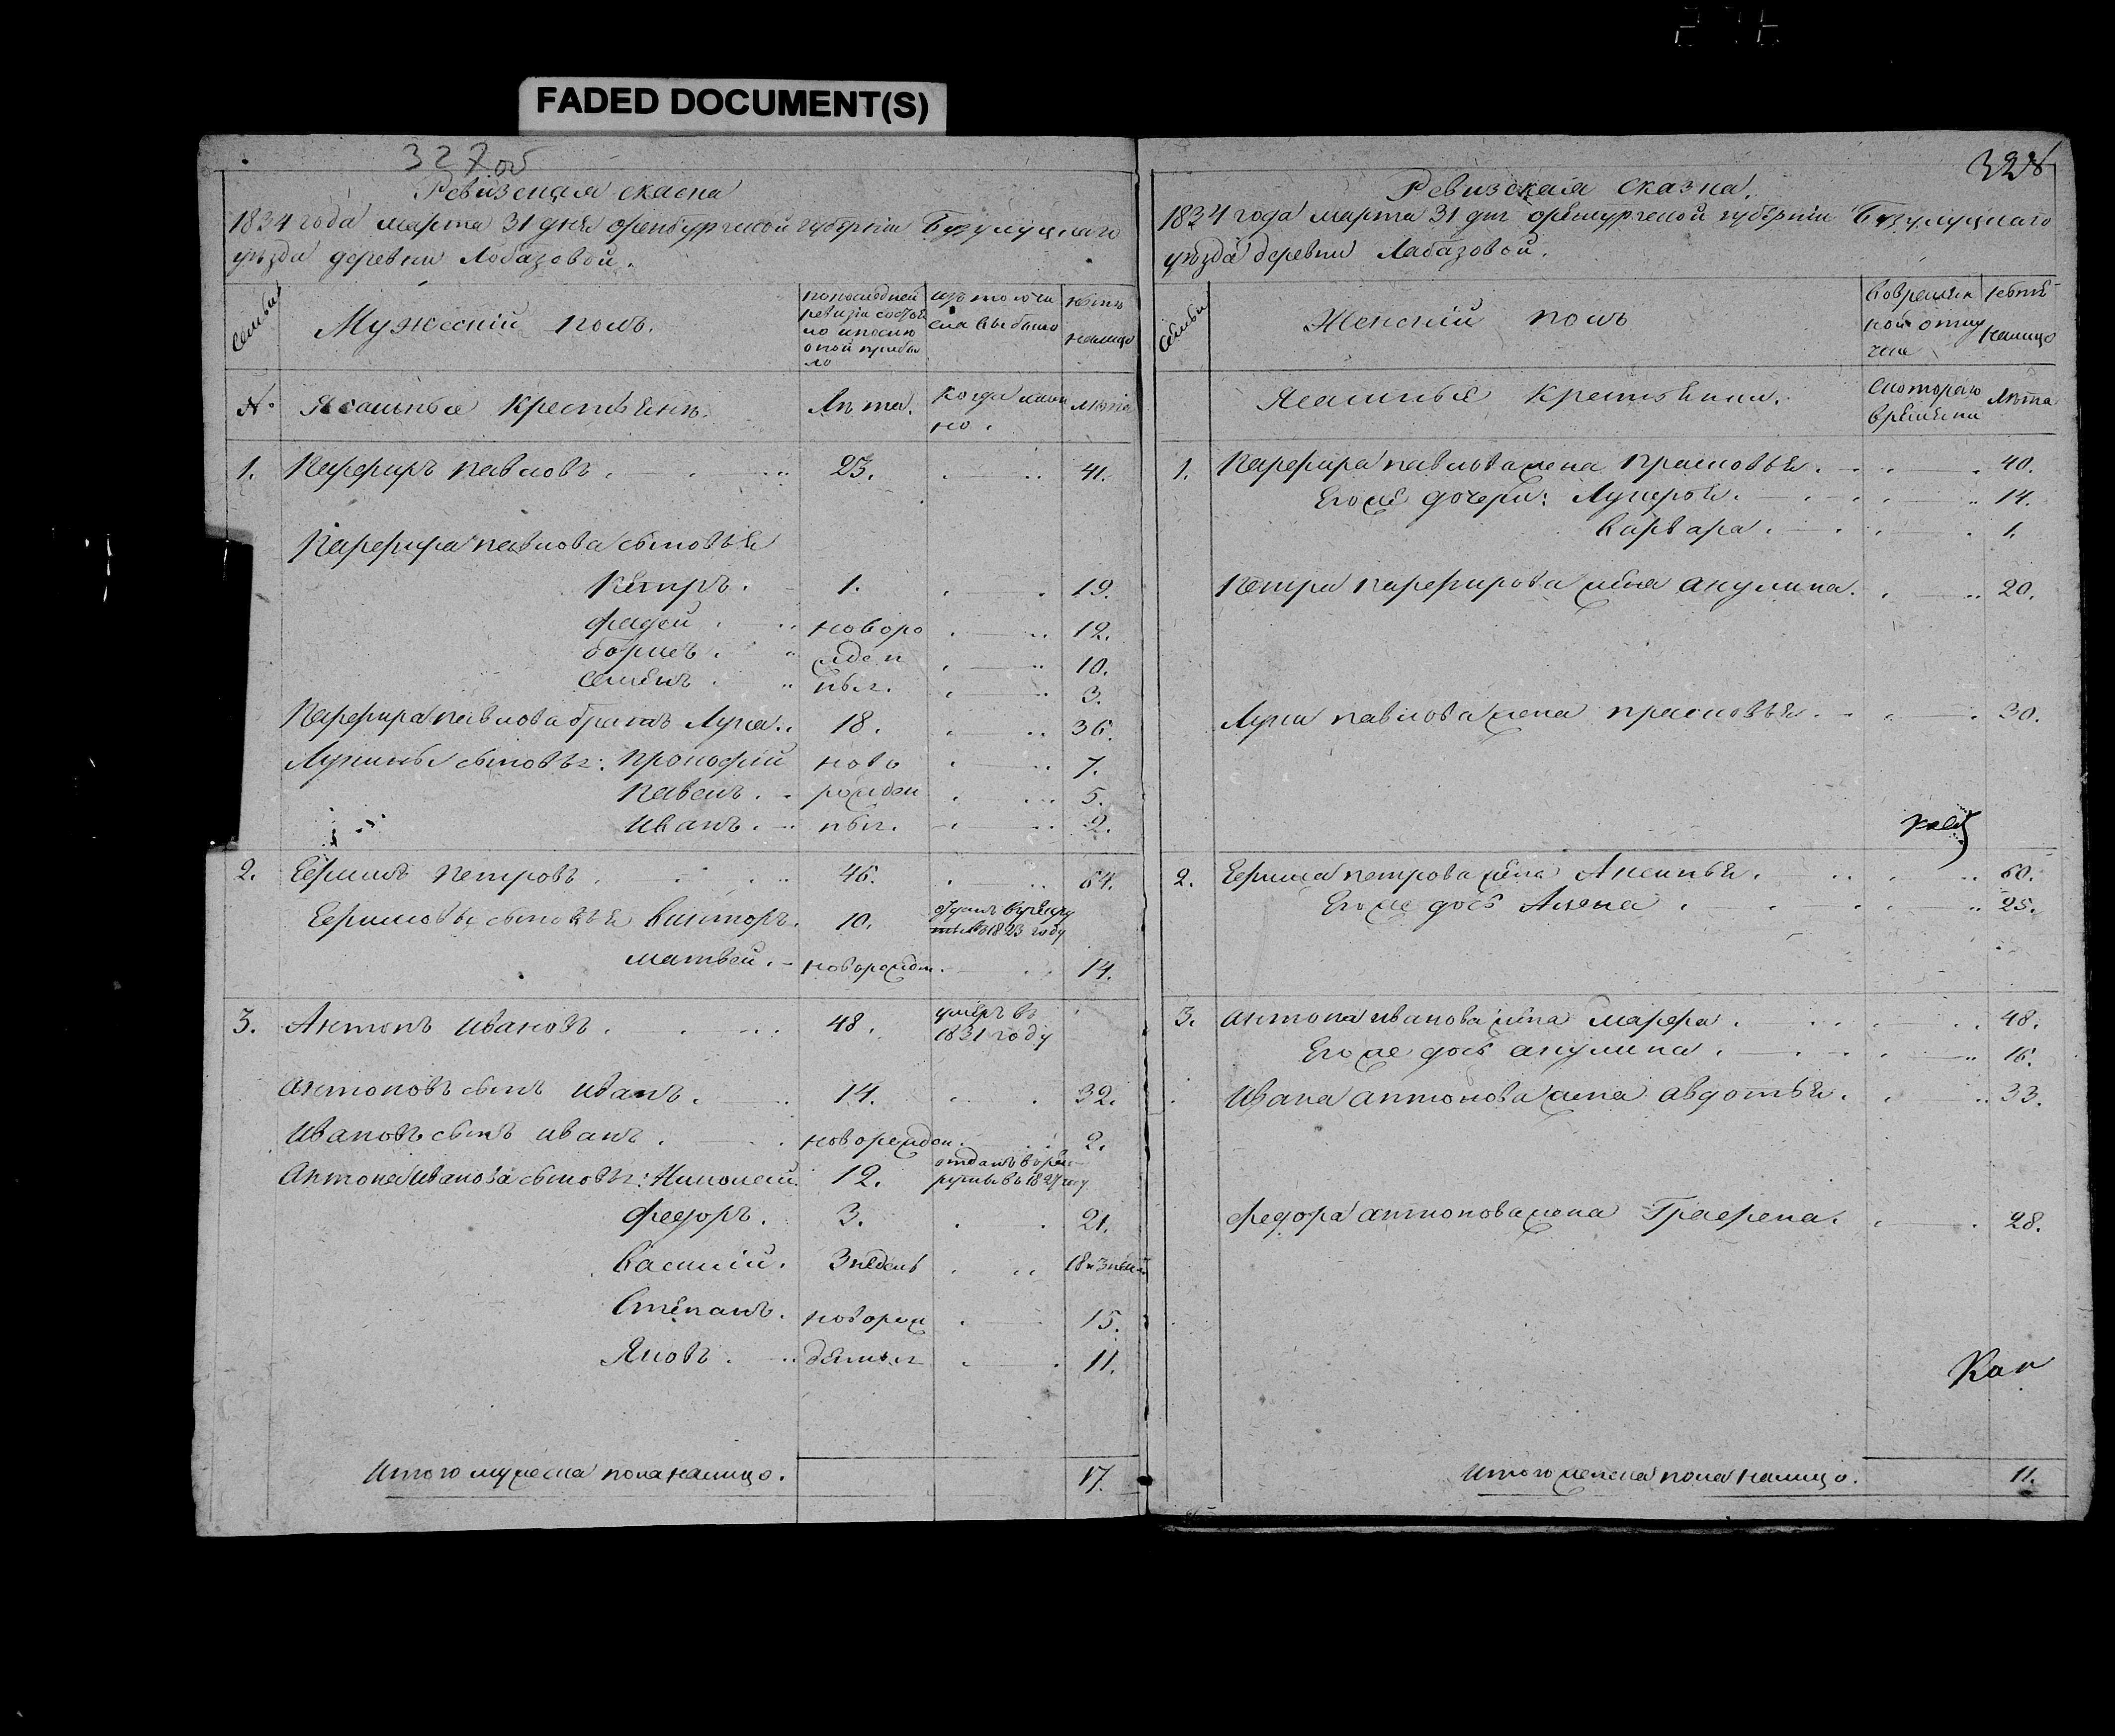 FADED DOCUMENT(S)
327об
Ревизская сказка
1834 года марта 31 дня оренбургской губернiи Бузулуцкаго
уезда деревни Лобазовой.
семьи
Мужескiй полъ.
по последней
ревизiи состоя
ло и после
оной прибы
ло
изъ того чи
сла выбыло
ныне
налицо
№
Ясашные крестьяне.
Лета.
когда имян
но.
лета
1. Парфиръ павловъ. 23. 41.
Парфира павлова сыновья
Петръ. 1. 19.
фадей. новоро 12.
борисъ. жден 10.
семенъ. ныя. 3.
Парфира павлова братъ Лука. 18. 36.
Лукины сыновья: прокофiй ново 7.
Павелъ. рожден 5.
иванъ. ныя. 2.
2. Ефимъ Петровъ. 46. 64.
Ефимовы сыновья викторъ. 10. отданъ в рекру
ты в 1823 году
матвей. новорожден. 14.
3. Антонъ ивановъ. 48. умеръ въ
1831 году
антоновъ сынъ иванъ. 14. 32.
ивановъ сынъ иванъ. новорожден. 2.
Антона иванова сыновья: Николай 12. отданъ в рек
руты въ 1827 году
федоръ. 3. 21.
василiй. 3 недель 18 и 3 неде
Степанъ. новорож 15.
Яковъ. денныя 11.
итого мужеска пола налицо. 17.
328
Ревизская сказка.
1834 года марта 31 дня оренбургской губернiи Бузулуцкаго
уезда деревни Лабазовой.
семьи
Женскiй полъ
во времян
ной отлу
чке
ныне
налицо
Ясашные крестьянки.
с котораго
времени
Лета
1. Парфира павлова жена прасковья. 40.
Его же дочери: Лукерья. 14.
варвара. 1.
Петра парфирова жена акулина. 20.
Луки павлова жена прасковья. 30.
2. Ефима петрова жена Аксинья. 60.
Его же дочь Алена. 25.
3. антона иванова жена марфа. 48.
Его же дочь акулина. 16.
Ивана антонова жена авдотья. 33.
федора антонова жена Графена. 28.
Кап
итого женска пола налицо. 11.